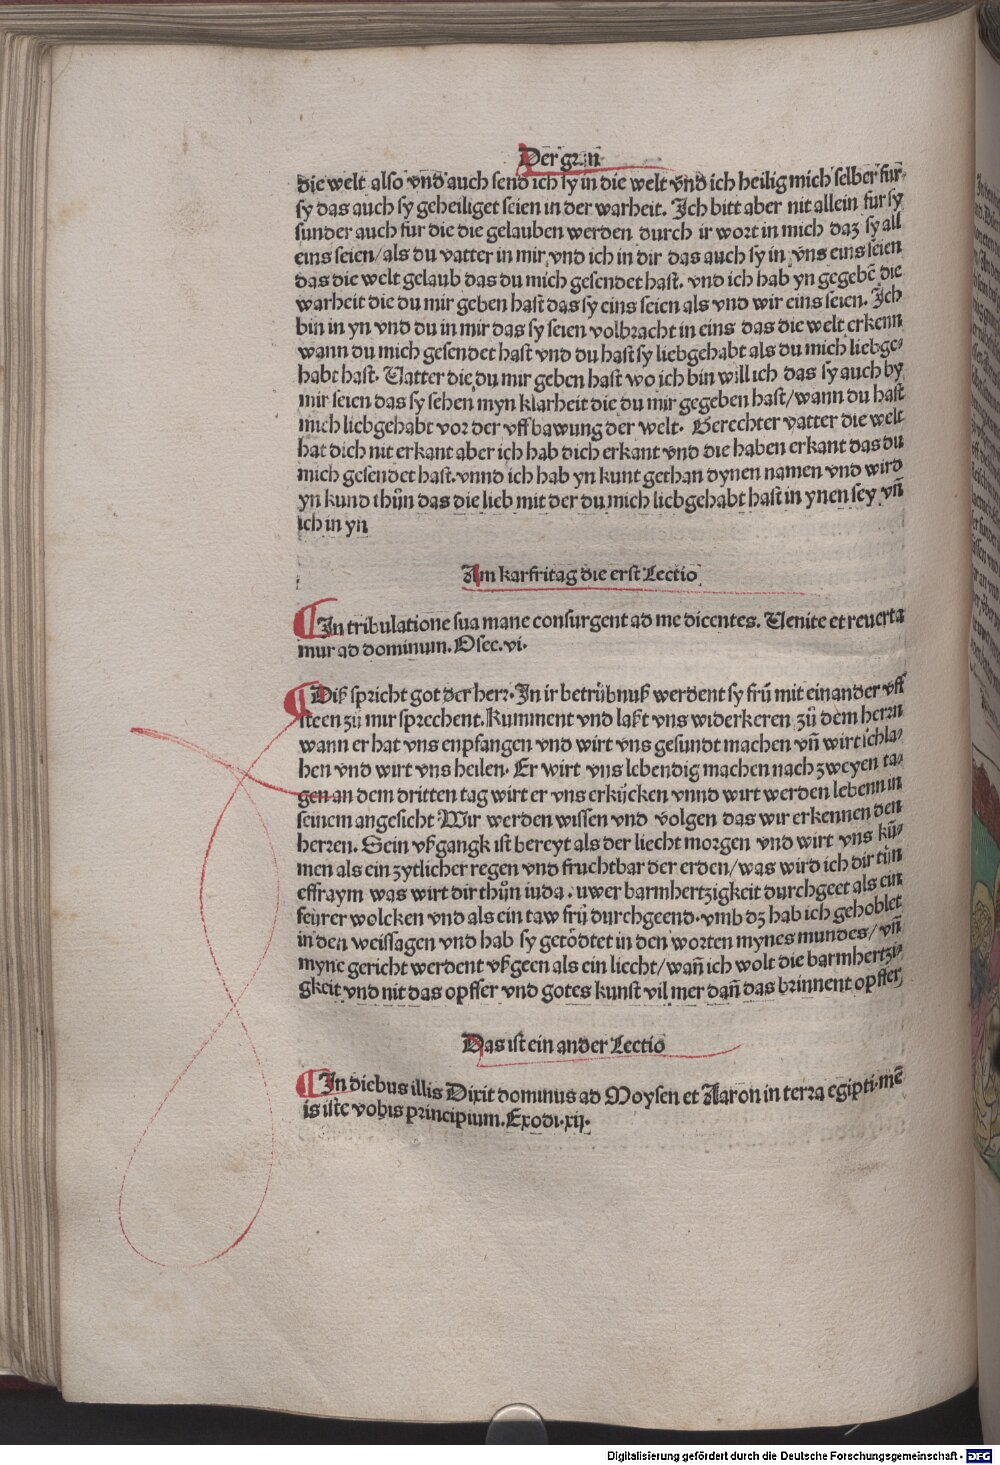 Der grün
die welt also vnd auch send ich sy in die welt vnd ich heilig mich selber fur
sy das auch sy geheiliget seien in der warheit. Ich bitt aber nit allein fur sy
sunder auch fur die die gelauben werden durch ir wort in mich daz sy all
eins seien/als du vatter in mir vnd ich in dir das auch sy in vns eins seien
das die welt gelaub das du mich gesendet hast. vnd ich hab yn gegebē die
warheit die du mir geben hast das sy eins seien als vnd wir eins seien. Ich
bin in yn vnd du in mir das sy seien volbracht in eins das die welt erkenn
wann du mich gesendet hast vnd du hast sy liebgehabt als du mich liebge-
habt hast. Vatter die du mir geben hast wo ich bin will ich das sy auch by
mir seien das sy sehen myn klarheit die du mir gegeben hast/wann du hast
mich liebgehabt vor der vffbawung der welt. Gerechter vatter die welt
hat dich nit erkant aber ich hab dich erkant vnd die haben erkant das du
mich gesendet hast. vnnd ich hab yn kunt gethan dynen namen vnd wird
yn kund thůn das die lieb mit der du mich liebgehabt hast in ynen sey vn̄
ich in yn
Am karfritag die erst Lectio
¶ In tribulatione sua mane consurgent ad me dicentes. Venite et reuerta
mur ad dominum. Osee. vi.
¶ Diß spricht got der herr. In ir betrübnuß werdent sy frü mit einander vff
steen zů mir sprechent. Kumment vnd laßt vns widerkeren zů dem herrn
wann er hat vns enpfangen vnd wirt vns gesundt machen vn̄ wirt ichla-
hen vnd wirt vns heilen. Er wirt vns lebendig machen nach zweyen ta-
gen an dem dritten tag wirt er vns erkücken vnnd wirt werden lebenn in
seinem angesicht Wir werden wissen vnd volgen das wir erkennen den
herren. Sein vßgangk ist bereyt als der liecht morgen vnd wirt vns kü-
men als ein zytlicher regen vnd fruchtbar der erden/was wird ich dir tůn
effraym was wirt dir thůn iuda. uwer barmhertzigkeit durchgeet als ein
feürer wolcken vnd als ein taw frü durchgeend. vmb dz hab ich gehoblet
in den weissagen vnd hab sy getödtet in den worten mynes mundes/vn̄
myne gericht werdent vßgeen als ein liecht/wan̄ ich wolt die barmhertzi-
gkeit vnd nit das opffer vnd gotes kunst vil mer dan̄ das brinnent opffer
Das ist ein ander Lectio
¶ In diebus illis Dixit dominus ad Moysen et Aaron in terra egipti. mē
is iste vobis principium. Exodi. xij.
Digitalisierung gefördert durch die Deutsche Forschungsgemeinschaft - DFG